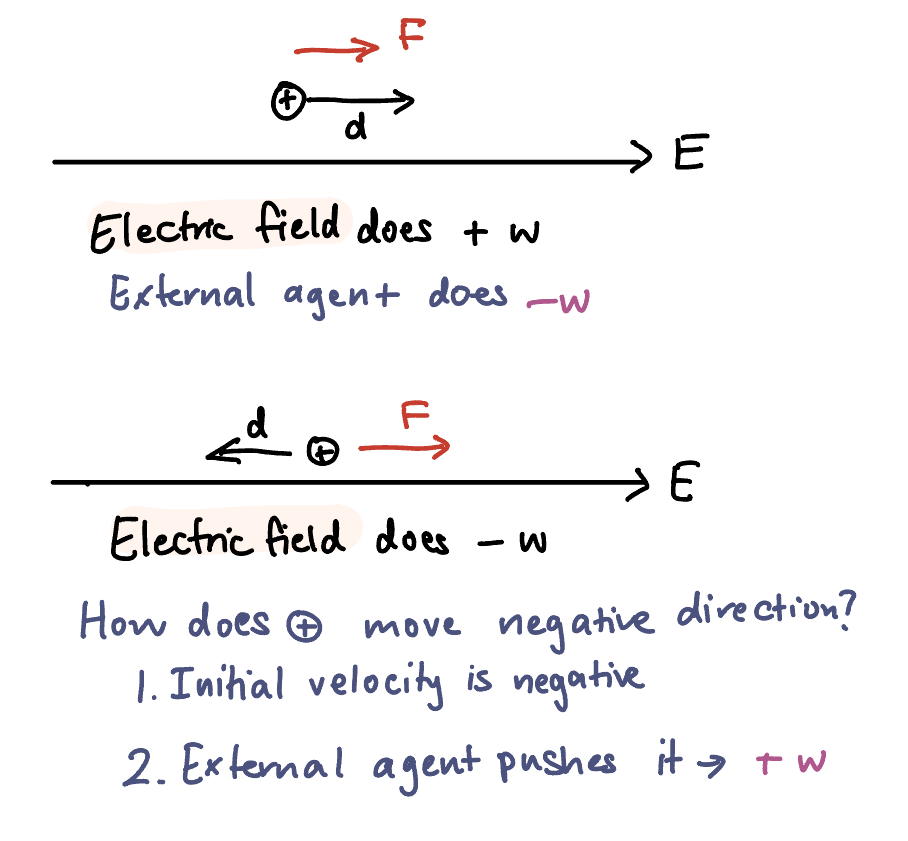 F
⊕
d
E
Electric field does + w
External agent does -w
d ⊕ F
E
Electric field does - w
How does ⊕ move negative direction?
1. Initial velocity is negative
2. External agent pushes it → + w